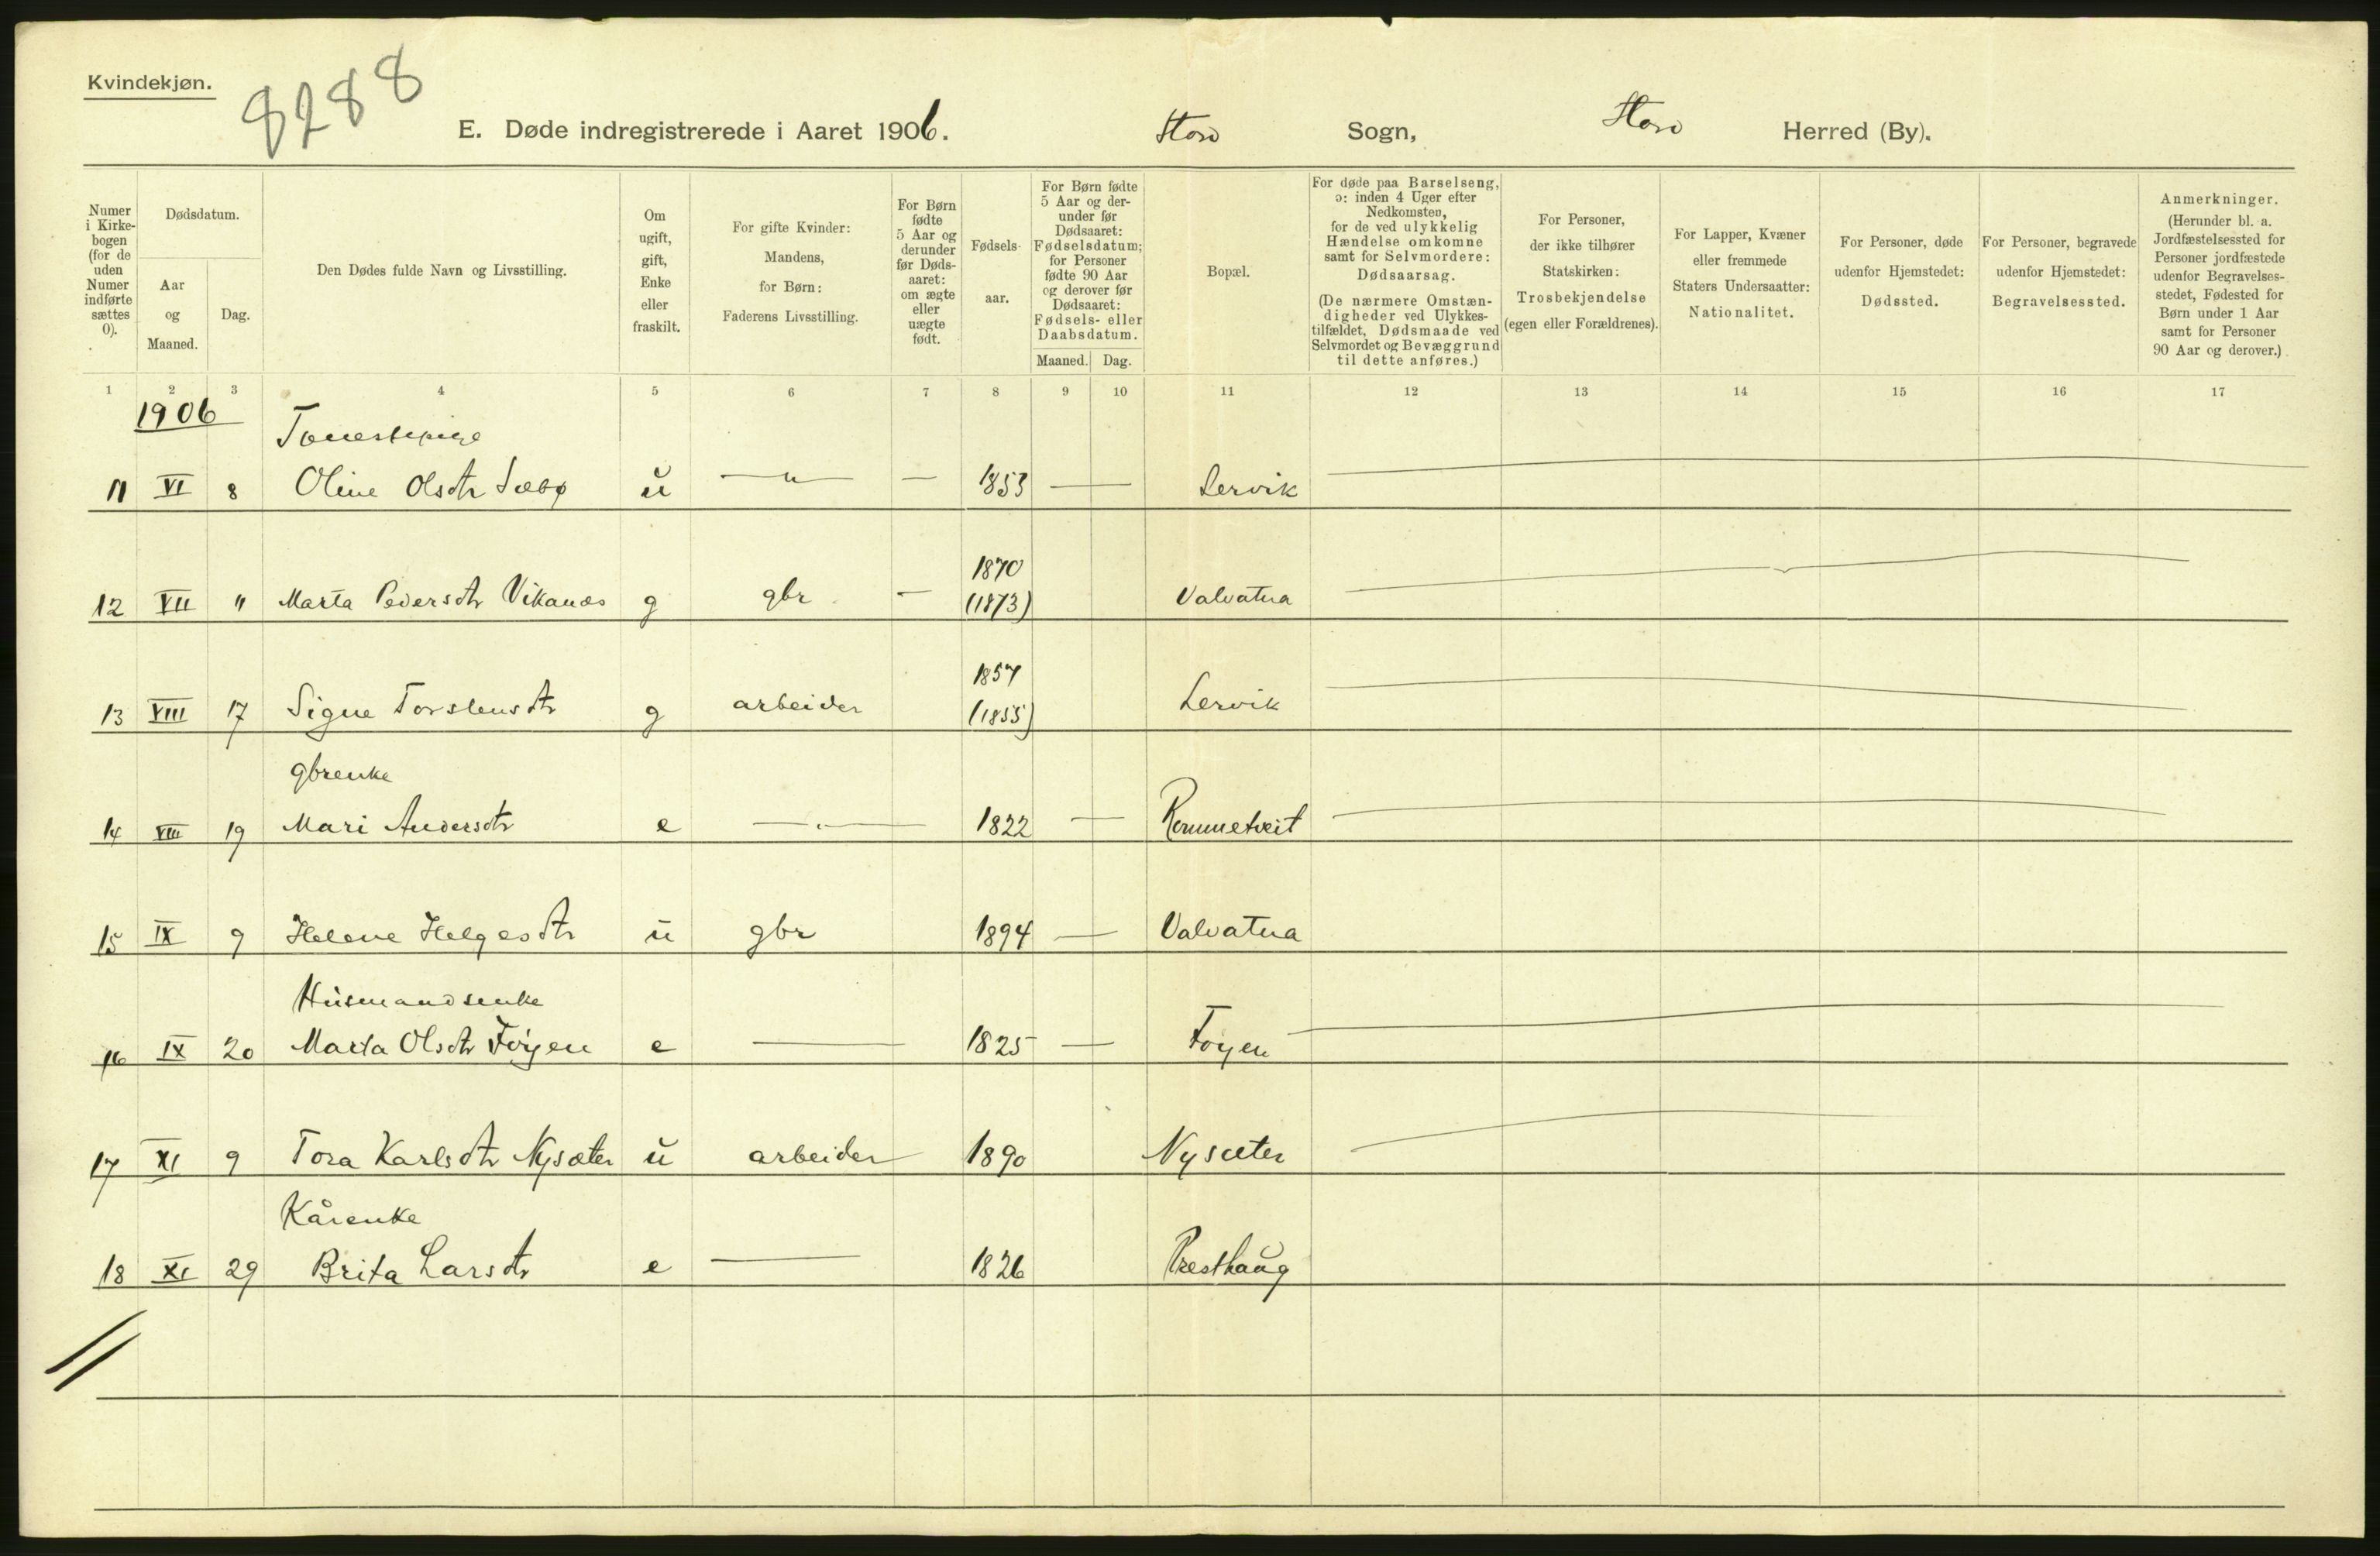 Kvindekjøn.
8288
E. Døde indregistrerede i Aaret 1906. Stord Sogn, Stord Herred (By).
Numer i Kirkebogen (for de uden Numer indførte sættes 0).
Dødsdatum.
Aar og Maaned.
Dag.
Den Dødes fulde Navn og Livsstilling.
Om ugift, gift, Enke eller fraskilt.
For gifte Kvinder: Mandens, for Børn: Faderens Livsstilling.
For Børn fødte 5 Aar og derunder før Dødsaaret: om ægte eller uægte født.
Fødselsaar.
For Børn fødte 5 Aar og derunder før Dødsaaret: Fødselsdatum; for Personer fødte 90 Aar og derover før Dødsaaret: Fødsels- eller Daabsdatum.
Maaned. Dag.
Bopæl.
For døde paa Barselseng, ɔ: inden 4 Uger efter Nedkomsten, for de ved ulykkelig Hændelse omkomne samt for Selvmordere: Dødsaarsag.
(De nærmere Omstændigheder ved Ulykkestilfældet, Dødsmaade ved Selvmordet og Bevæggrund til dette anføres.)
For Personer, der ikke tilhører Statskirken: Trosbekjendelse (egen eller Forældrenes).
For Lapper, Kvæner eller fremmede Staters Undersaatter: Nationalitet.
For Personer, døde udenfor Hjemstedet: Dødssted.
For Personer, begravede udenfor Hjemstedet: Begravelsessted.
Anmerkninger.
(Herunder bl. a. Jordfæstelsessted for Personer jordfæstede udenfor Begravelsesstedet, Fødested for Børn under 1 Aar samt for Personer 90 Aar og derover.)
1 2 3 4 5 6 7 8 9 10 11 12 13 14 15 16 17
1906
Tjenestepige
11 VI 8 Oline Olsdtr Sæbø u — " — — 1853 — Lervik
1870
12 VII " Marta Pedersdtr Vikanes g gbr — (1873) Valvatna
1857
13 VIII 17 Signe Torstensdtr g arbeider (1855) Lervik
gbrenke
14 VIII 19 Mari Andersdtr e — " — 1822 — Rommetveit
15 IX 9 Helene Helgesdtr u gbr 1894 — Valvatna
Husmandsenke
16 IX 20 Marta Olsdtr Føyen e — 1825 — Føyen
17 XI 9 Tora Karlsdtr Nysæter u arbeider 1890 Nysæter
Kårenke
18 XI 29 Brita Larsdtr e — 1826 Presthaug